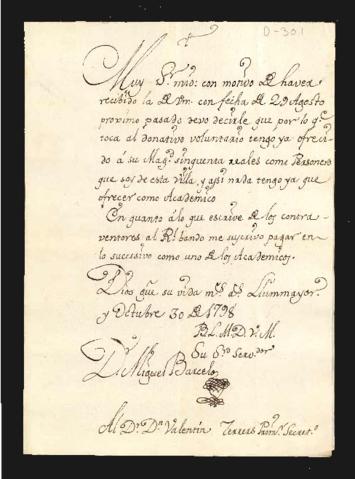 D-301
+
Muy Sr. mio: con motivo de haver
recibido la de Vm. con fecha de 29 Agosto
proximo pasado devo decirle que por lo qe.
toca al donativo voluntario tengo ya ofreci
do á su Magd. sinquenta reales como Personero
que soy de esta villa, y assi nada tengo ya que
ofrecer como Academico
En quanto álo que escrive de los contra-
ventores al Rl. bando me suscrivo pagar en
lo sucessivo como uno de los Academicos.
Dios gue su vida ms. as. Llummayor
y Octubre 30 de 1798
B. L. M. D. V. M.
Su Servor.
Dr. Miguel Barcelo
Al Dr. Dn. Valentin Terrers Secreto.